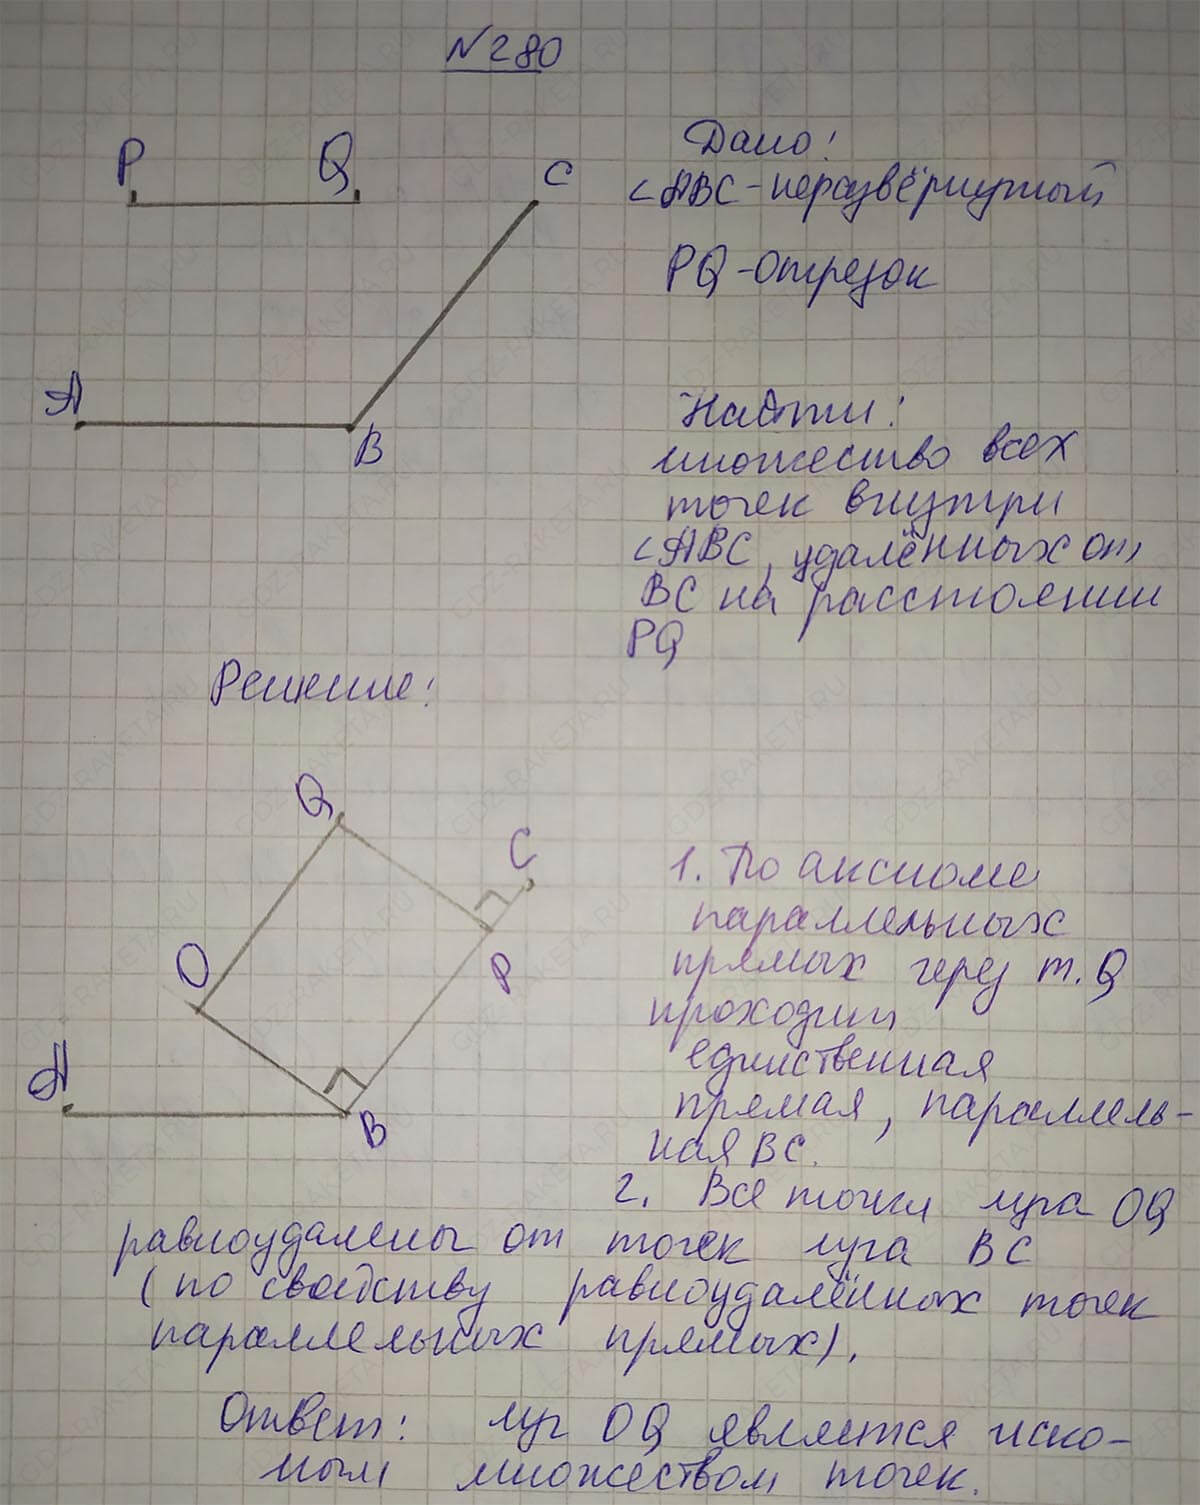 №280
P Q C
Дано:
∠ABC-неразвёрнутый
PQ-отрезок
A
B
Найти:
множество всех
точек внутри
∠ABC, удалённых от
BC на расстоянии
PQ
Решение:
Q
C
O
P
A
B
1. По аксиоме
параллельных
прямых через т. Q
проходит
единственная
прямая, параллель-
ная BC.
2. Все точки луча OQ
равноудалены от точек луча BC
(по свойству равноудалённых точек
параллельных прямых).
Ответ: луч OQ является иско-
мым множеством точек.